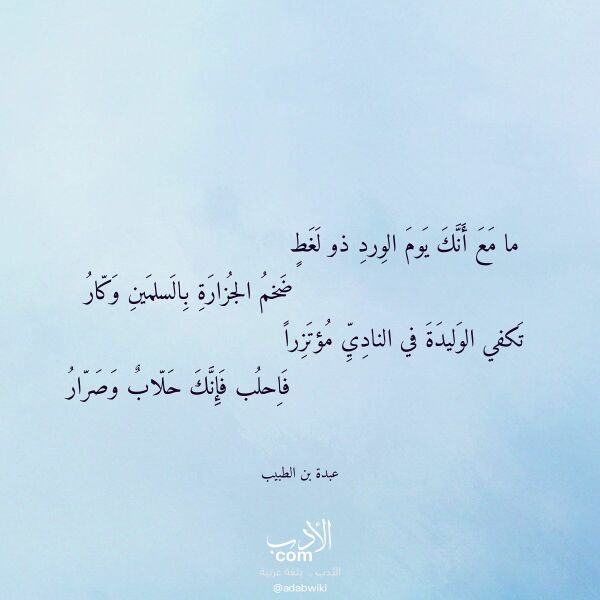 ما مَعَ أَنَّكَ يَومَ الوِردِ ذو لَغَطٍ
ضَخمُ الجُزارَةِ بِالَسلمَينِ وَكّارُ
تَكفي الوَليدَةَ في النادِيِّ مُؤتَزِراً
فَاِحلُب فَإِنَّكَ حَلّابٌ وَصَرّارُ
عبدة بن الطبيب
الأدب
com
الأدب .. بلغة عربية
@adabwiki